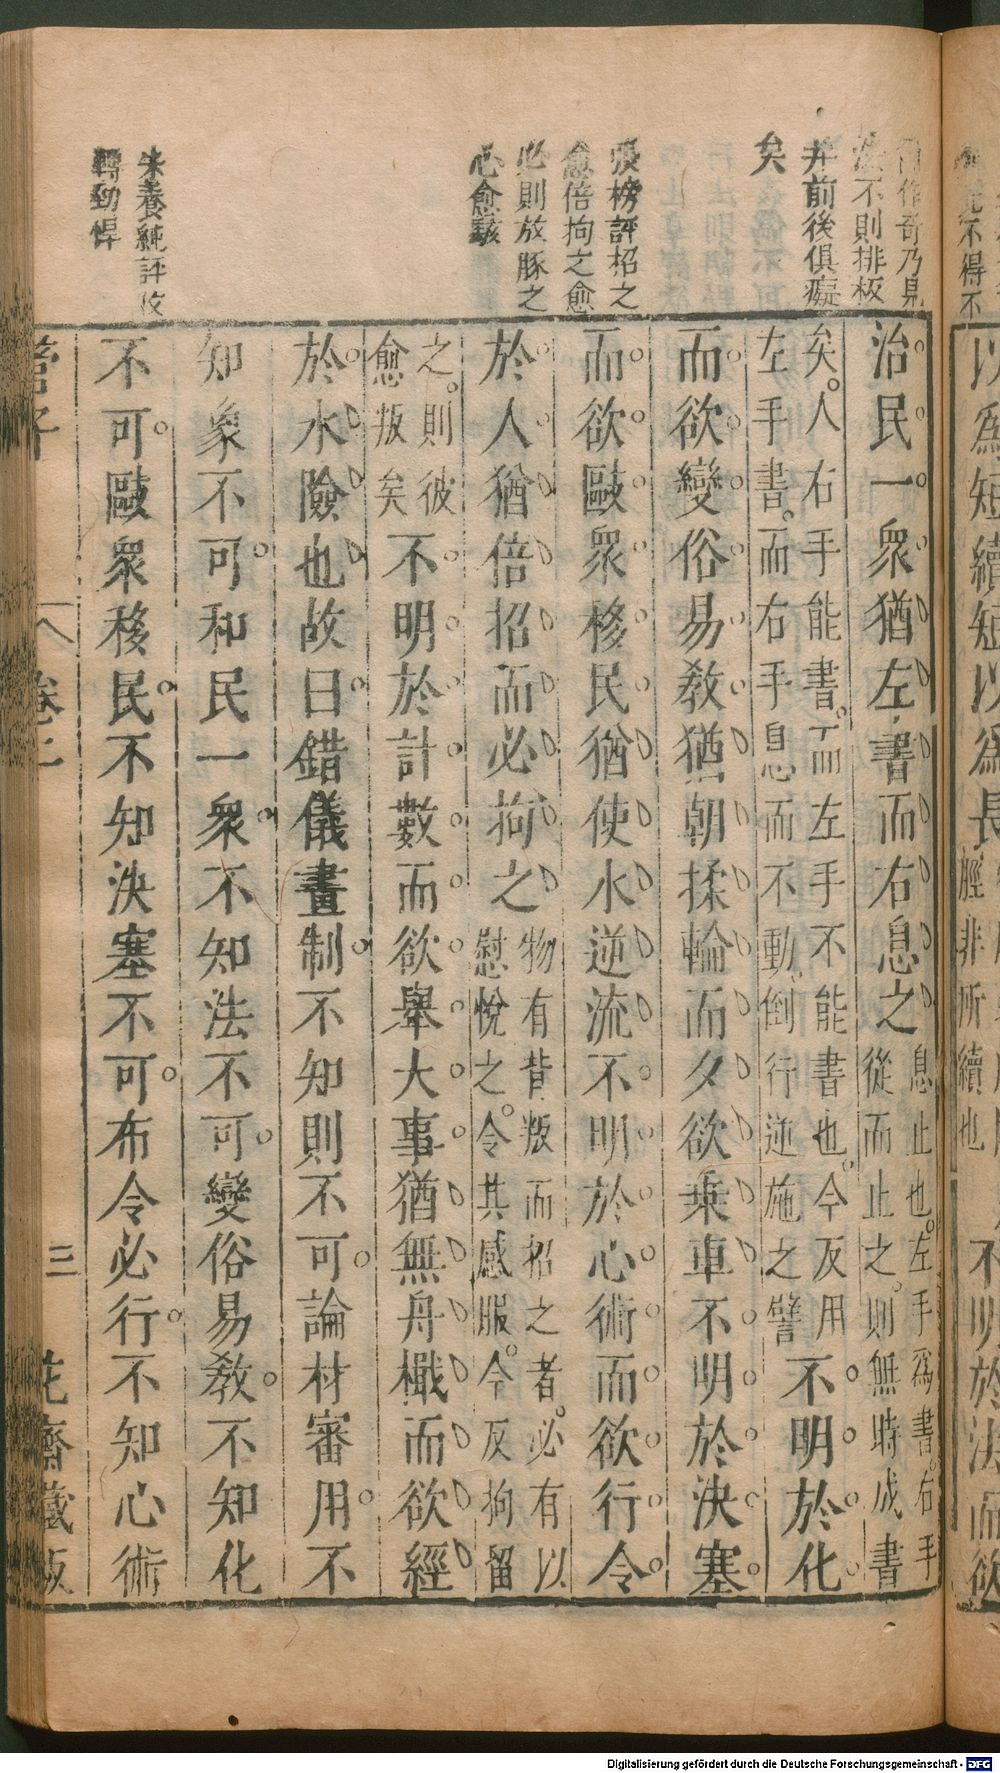 行作奇乃見
法不則排板
并前後俱癡
矣
張榜評招之
愈倍拘之愈
必則放豚之
心愈駭
朱養純評收
轉勁悍
治民一衆猶左書而右息之
息止也。左手爲書。右手
從而止之。則無時成書
矣。人右手能書。而左手不能書也。今反用
左手書。而右手息而不動、倒行逆施之譬
不明於化
而欲變俗易教猶朝揉輪而夕欲乗車不明於決塞
而欲敺衆移民猶使水逆流不明於心術而欲行令
於人猶倍招而必拘之
物有背叛而招之者。必有以
慰悅之。令其感服。今反拘留
之。則彼
愈叛矣
不明於計數而欲舉大事猶無舟檝而欲經
於水險也故曰錯儀畫制不知則不可論材審用不
知象不可和民一衆不知法不可變俗易教不知化
不可敺衆移民不知決塞不可布令必行不知心術
管子
卷二
三
花齋藏板
以爲短續短以爲長
脛非所續也
不明於法而欲
Digitalisierung gefördert durch die Deutsche Forschungsgemeinschaft - DFG